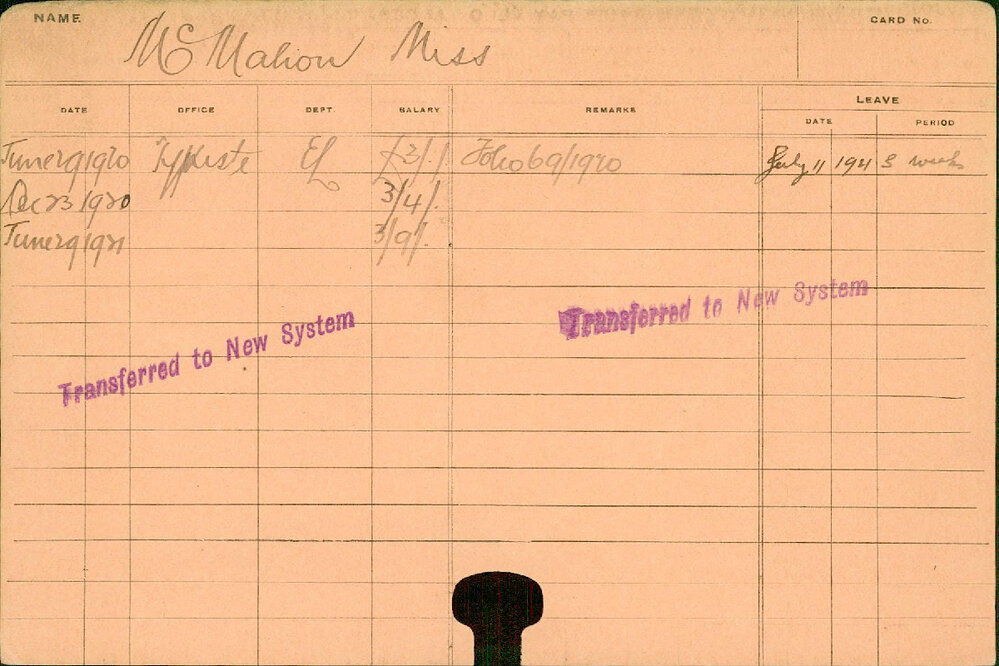 NAME
CARD No.
McMahon Miss
DATE OFFICE DEPT. SALARY REMARKS LEAVE
DATE PERIOD
June 29 1920 Typiste EL £3/./. Folio 69/1920 July 11 1921 3 weeks
Dec 23 1920 3/4/.
June 29 1921 3/9/.
Transferred to New System
Transferred to New System